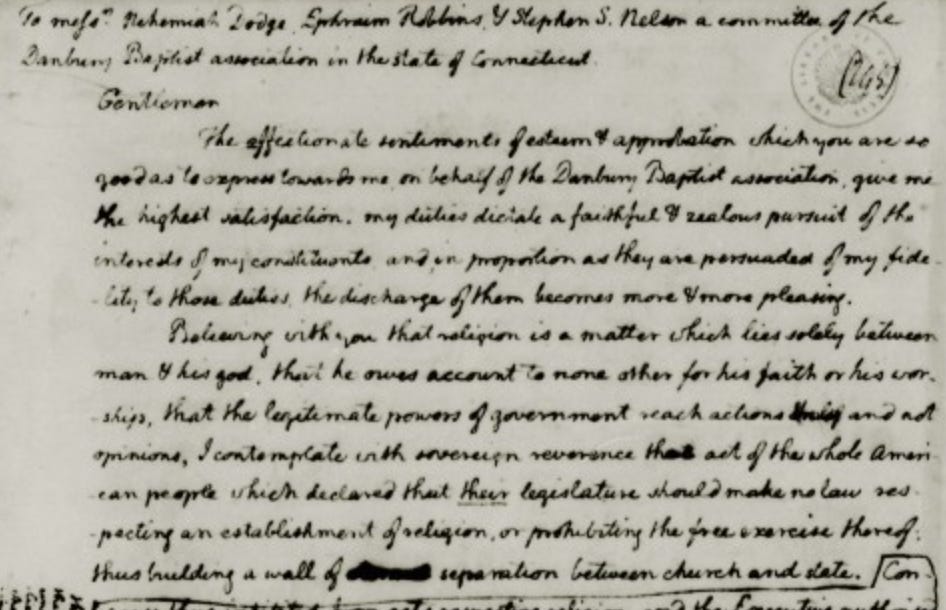 To mess.rs Nehemiah Dodge, Ephraim Robbins, & Stephen S. Nelson a committee of the
Danbury Baptist association in the state of Connecticut.
(145)
Gentlemen
The affectionate sentiments of esteem & approbation which you are so
good as to express towards me, on behalf of the Danbury Baptist association, give me
the highest satisfaction. my duties dictate a faithful & zealous pursuit of the
interests of my constituents, and in proportion as they are persuaded of my fide-
-lity to those duties, the discharge of them becomes more & more pleasing.
Believing with you that religion is a matter which lies solely between
man & his god, that he owes account to none other for his faith or his wor-
-ship, that the legitimate powers of government reach actions only and not
opinions, I contemplate with sovereign reverence that act of the whole Ameri-
-can people which declared that their legislature should make no law res-
-pecting an establishment of religion, or prohibiting the free exercise thereof;
thus building a wall of separation between church and state. [Con-